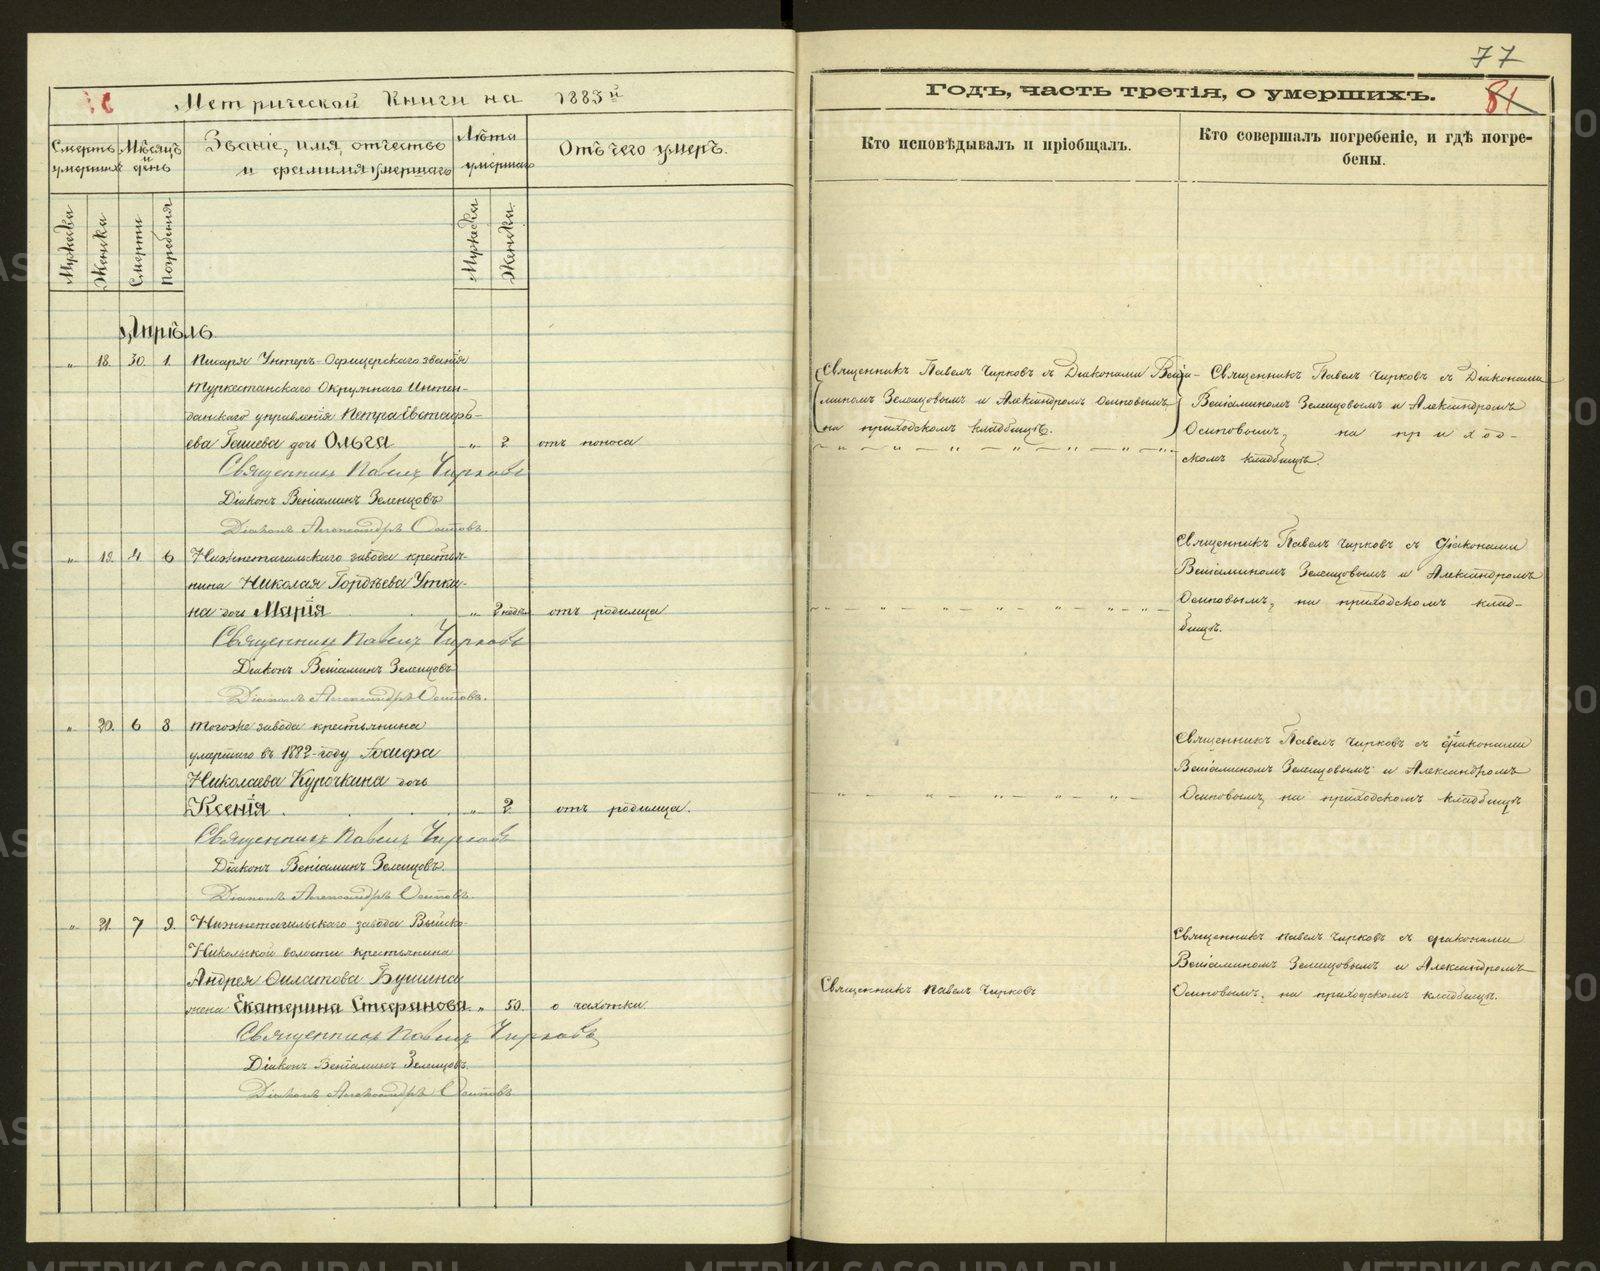 77
Метрической Книги на 1883й
Годъ, часть третія, о умершихъ.
81
Смерть умершихъ
Мѣсяцъ и день
Званіе, имя, отчество и фамилія умершаго
Лѣта умершаго
Отъ чего умеръ.
Кто исповѣдывалъ и пріобщалъ.
Кто совершалъ погребеніе, и гдѣ погре-
бены.
Мужеска
Женска
Смерти
Погребенія
Мужеска
Женска
Апрѣль
" 18. 30. 1. Писаря Унтеръ-Офицерскаго званія
Туркестанскаго Окружнаго Интен-
дантскаго управленія Петра Евстафь-
ева дочь Ольга " 2 отъ поноса
Священникъ Павелъ Чирковъ
Діаконъ Веніаминъ Зеленцовъ
Діаконъ Александръ Осиповъ.
Священникъ Павелъ Чирковъ съ Діаконами Веніа-
миномъ Зеленцовымъ и Александромъ Осиповымъ,
на приходскомъ кладбищѣ.
Священникъ Павелъ Чирковъ съ Діаконами
Веніаминомъ Зеленцовымъ и Александромъ
Осиповымъ, на приход-
скомъ кладбищѣ.
" 19. 4 6 Нижнетагильскаго завода крестья-
нина Николая Гордѣева Утки-
на дочь Марія " 2 недѣл. отъ родимца
Священникъ Павелъ Чирковъ
Діаконъ Веніаминъ Зеленцовъ
Діаконъ Александръ Осиповъ.
Священникъ Павелъ Чирковъ съ Діаконами
Веніаминомъ Зеленцовымъ и Александромъ
Осиповымъ, на приходскомъ клад-
бищѣ.
" 20. 6 8. Тогоже завода крестьянина
умершаго въ 1882 году Іосифа
Николаева Курочкина дочь
Ксенія " 2 отъ родимца.
Священникъ Павелъ Чирковъ
Діаконъ Веніаминъ Зеленцовъ.
Діаконъ Александръ Осиповъ.
Священникъ Павелъ Чирковъ съ діаконами
Веніаминомъ Зеленцовымъ и Александромъ
Осиповымъ, на приходскомъ кладбищѣ
" 21. 7 9. Нижнетагильскаго завода Выйско-
Никольской волости крестьянина
Андрея Филатова Бушина
жена Екатерина Стефанова. " 50. о чахотки
Священникъ Павелъ Чирковъ
Діаконъ Веніаминъ Зеленцовъ
Діаконъ Александръ Осиповъ
Священникъ Павелъ Чирковъ
Священникъ Павелъ Чирковъ съ діаконами
Веніаминомъ Зеленцовымъ и Александромъ
Осиповымъ, на приходскомъ кладбищѣ.
METRIKI.GASO-URAL.RU